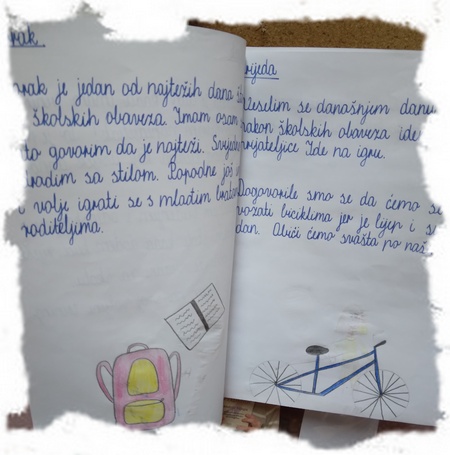 rak
rak je jedan od najtežih dana
školskih obaveza. Imam osam
to govorim da je najteži. Svejedno
radim sa stilom. Popodne još
volje igrati se s mlađim bratom
roditeljima.
rijeda
Veselim se današnjem danu
nakon školskih obaveza idem
prijateljice Ide na igru.
Dogovorile smo se da ćemo se
vozati biciklima jer je lijep i s
dan. Obići ćemo svašta po naš